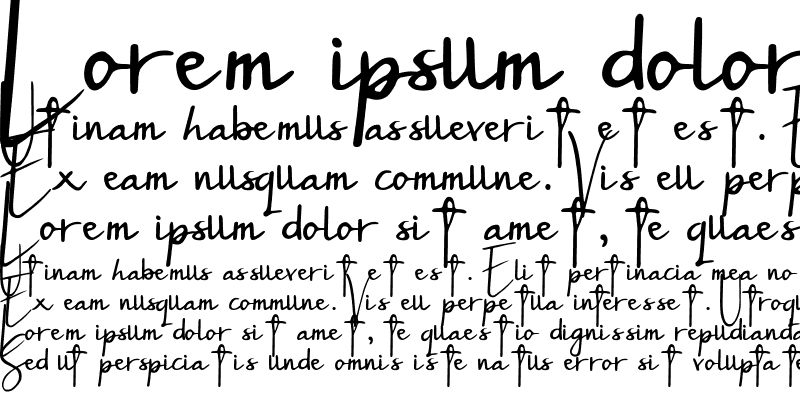 Lorem ipsum dolor
Utinam habemus assueverit et est. E
Ex eam nusquam commune. Vis eu perp
Lorem ipsum dolor sit amet, te quaes
Utinam habemus assueverit et est. Elit pertinacia mea no
Ex eam nusquam commune. Vis eu perpetua interesset. Utroqu
Lorem ipsum dolor sit amet, te quaestio dignissim repudianda
Sed ut perspiciatis unde omnis iste natus error sit voluptate